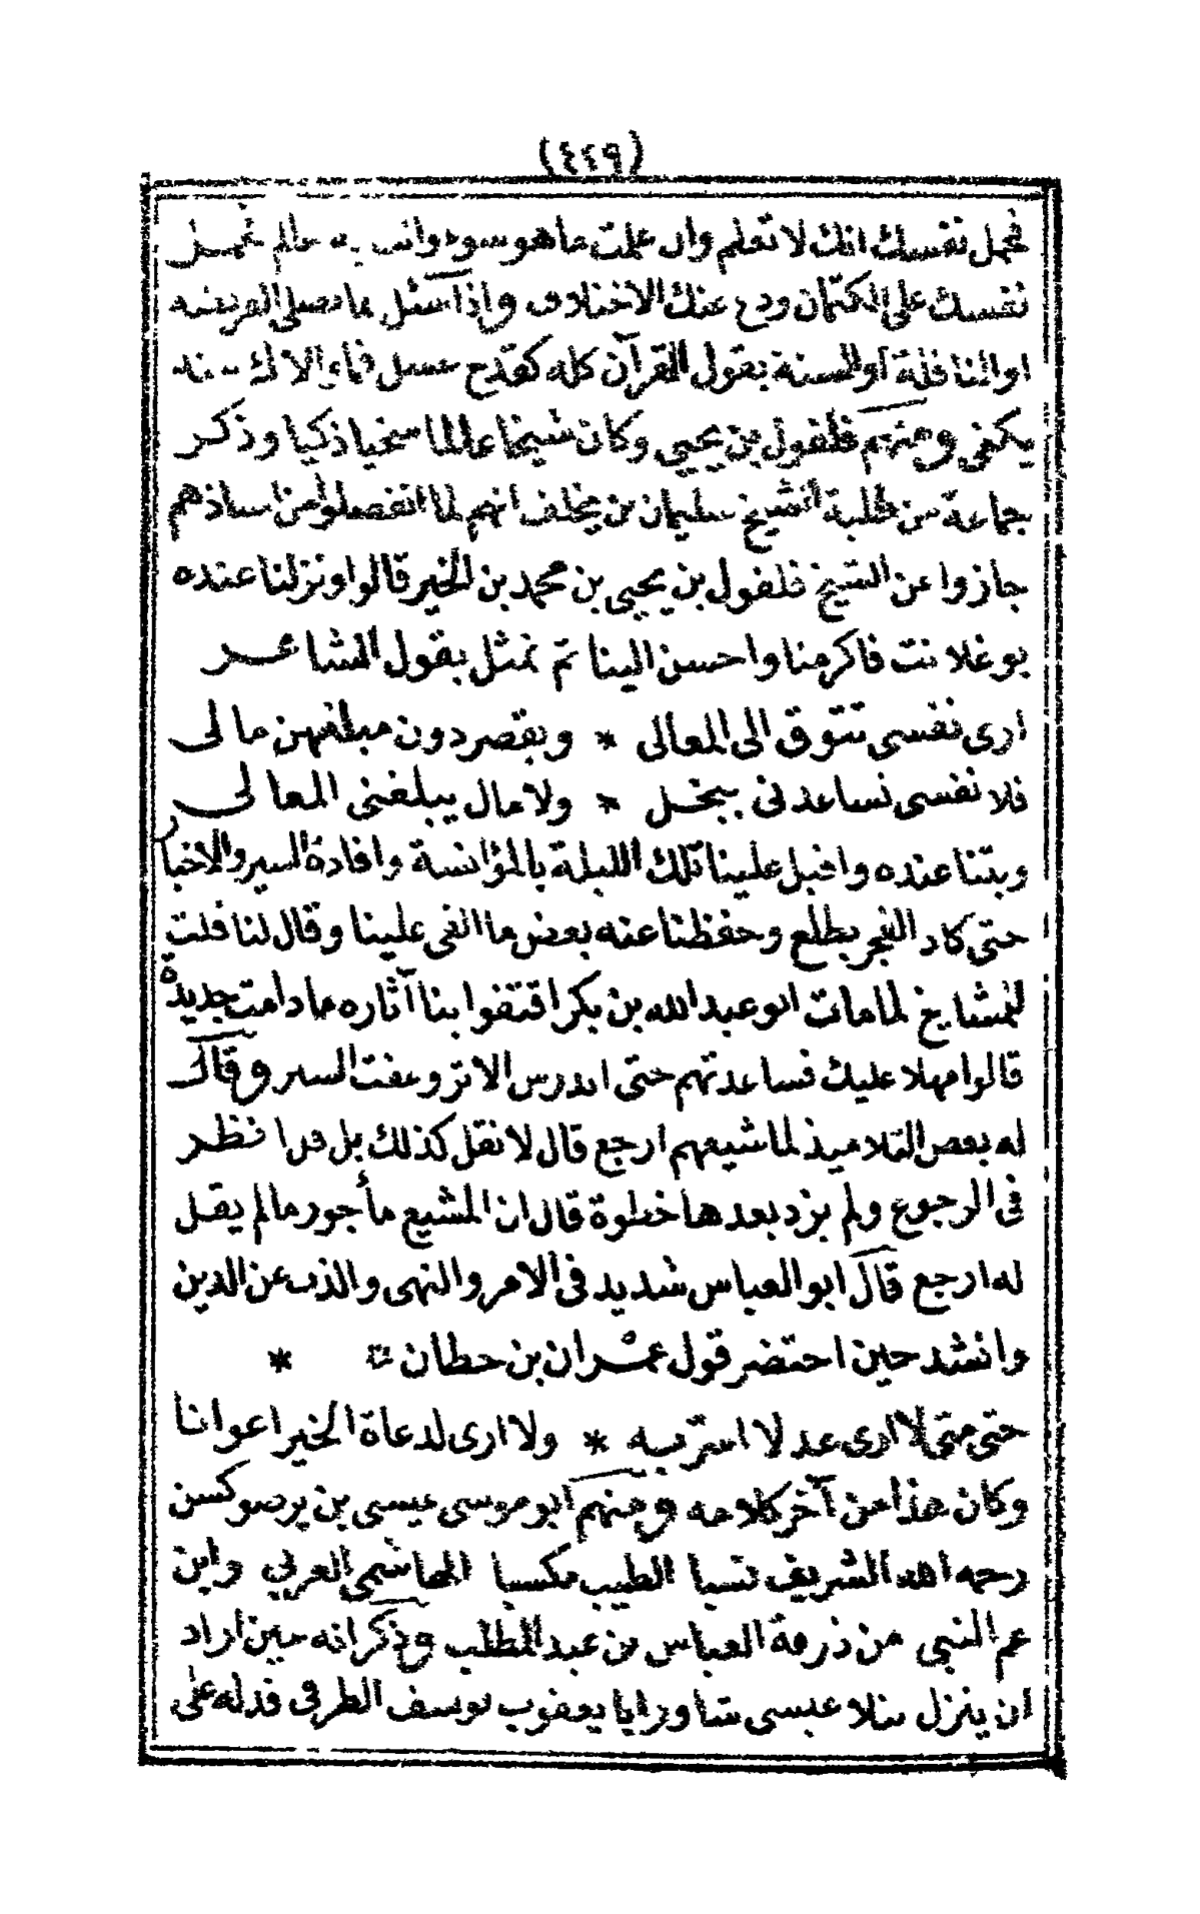 (٤٤٩)
فحمل نفسك انك لا تعلم وان علمت ما هو سوء وانت به عالم تحمـل
نفسك على الكتمان ودع عنك الاختلاف واذا سئل بما تصلى الفريضة
او النافلة او السنة يقول القرآن كله كقدح عسل فماء الا انك منه
يكفى ومنهم فلفول بن يحيى وكان شيخا عالما سخيا ذكيا وذكـر
جماعة من طلبة الشيخ سليمان بن يخلف انهم لما انفصلوا من استاذهم
جازوا عن الشيخ فلفول بن يحيى بن محمد بن الخير قالوا ونزلنا عنده
بوغلانت فاكرمنا واحسن الينا ثم تمثل بقول الشاعـر
ارى نفسى تتوق الى المعالى * ويقصر دون مبلغهن ما لى
فلا نفسى تساعدنى ببخـل * ولا مال يبلغنى المعالى
وبتنا عنده واقبل علينا تلك الليلة بالمؤانسة وافادة السير والاخبار
حتى كاد الفجر يطلع وحفظنا عنه بعض ما القى علينا وقال لنا قلت
لمشايخ لما مات ابو عبد الله بن بكر اقتفوا بنا آثاره ما دامت جديدة
قالوا مهلا عليك فساعدتهم حتى اندرس الاثر وعفت السير وقال
له بعض التلاميذ لما شيعهم ارجع قال لا نقل كذلك بل قرا نظـر
فى الرجوع ولم يزد بعدها خطوة قال ان المشيع مأجور ما لم يقـل
له ارجع قال ابو العباس شديد فى الامر والنهى والذب عن الدين
وانشد حين احتضر قول عمـران بن حطان *
حتى متى لا ارى عدلا اسر به * ولا ارى لدعاة الخير اعوانا
وكان هذا من آخر كلامه ومنهم ابو موسى عيسى بن يرصوكسن
رحمه الله الشريف نسبا الطيب مكسبا الهاشمى العربي وابن
عم النبي من ذرية العباس بن عبد المطلب وذكر انه حين اراد
ان ينزل عيسى يعقوب يوسف الطرفى فدله على